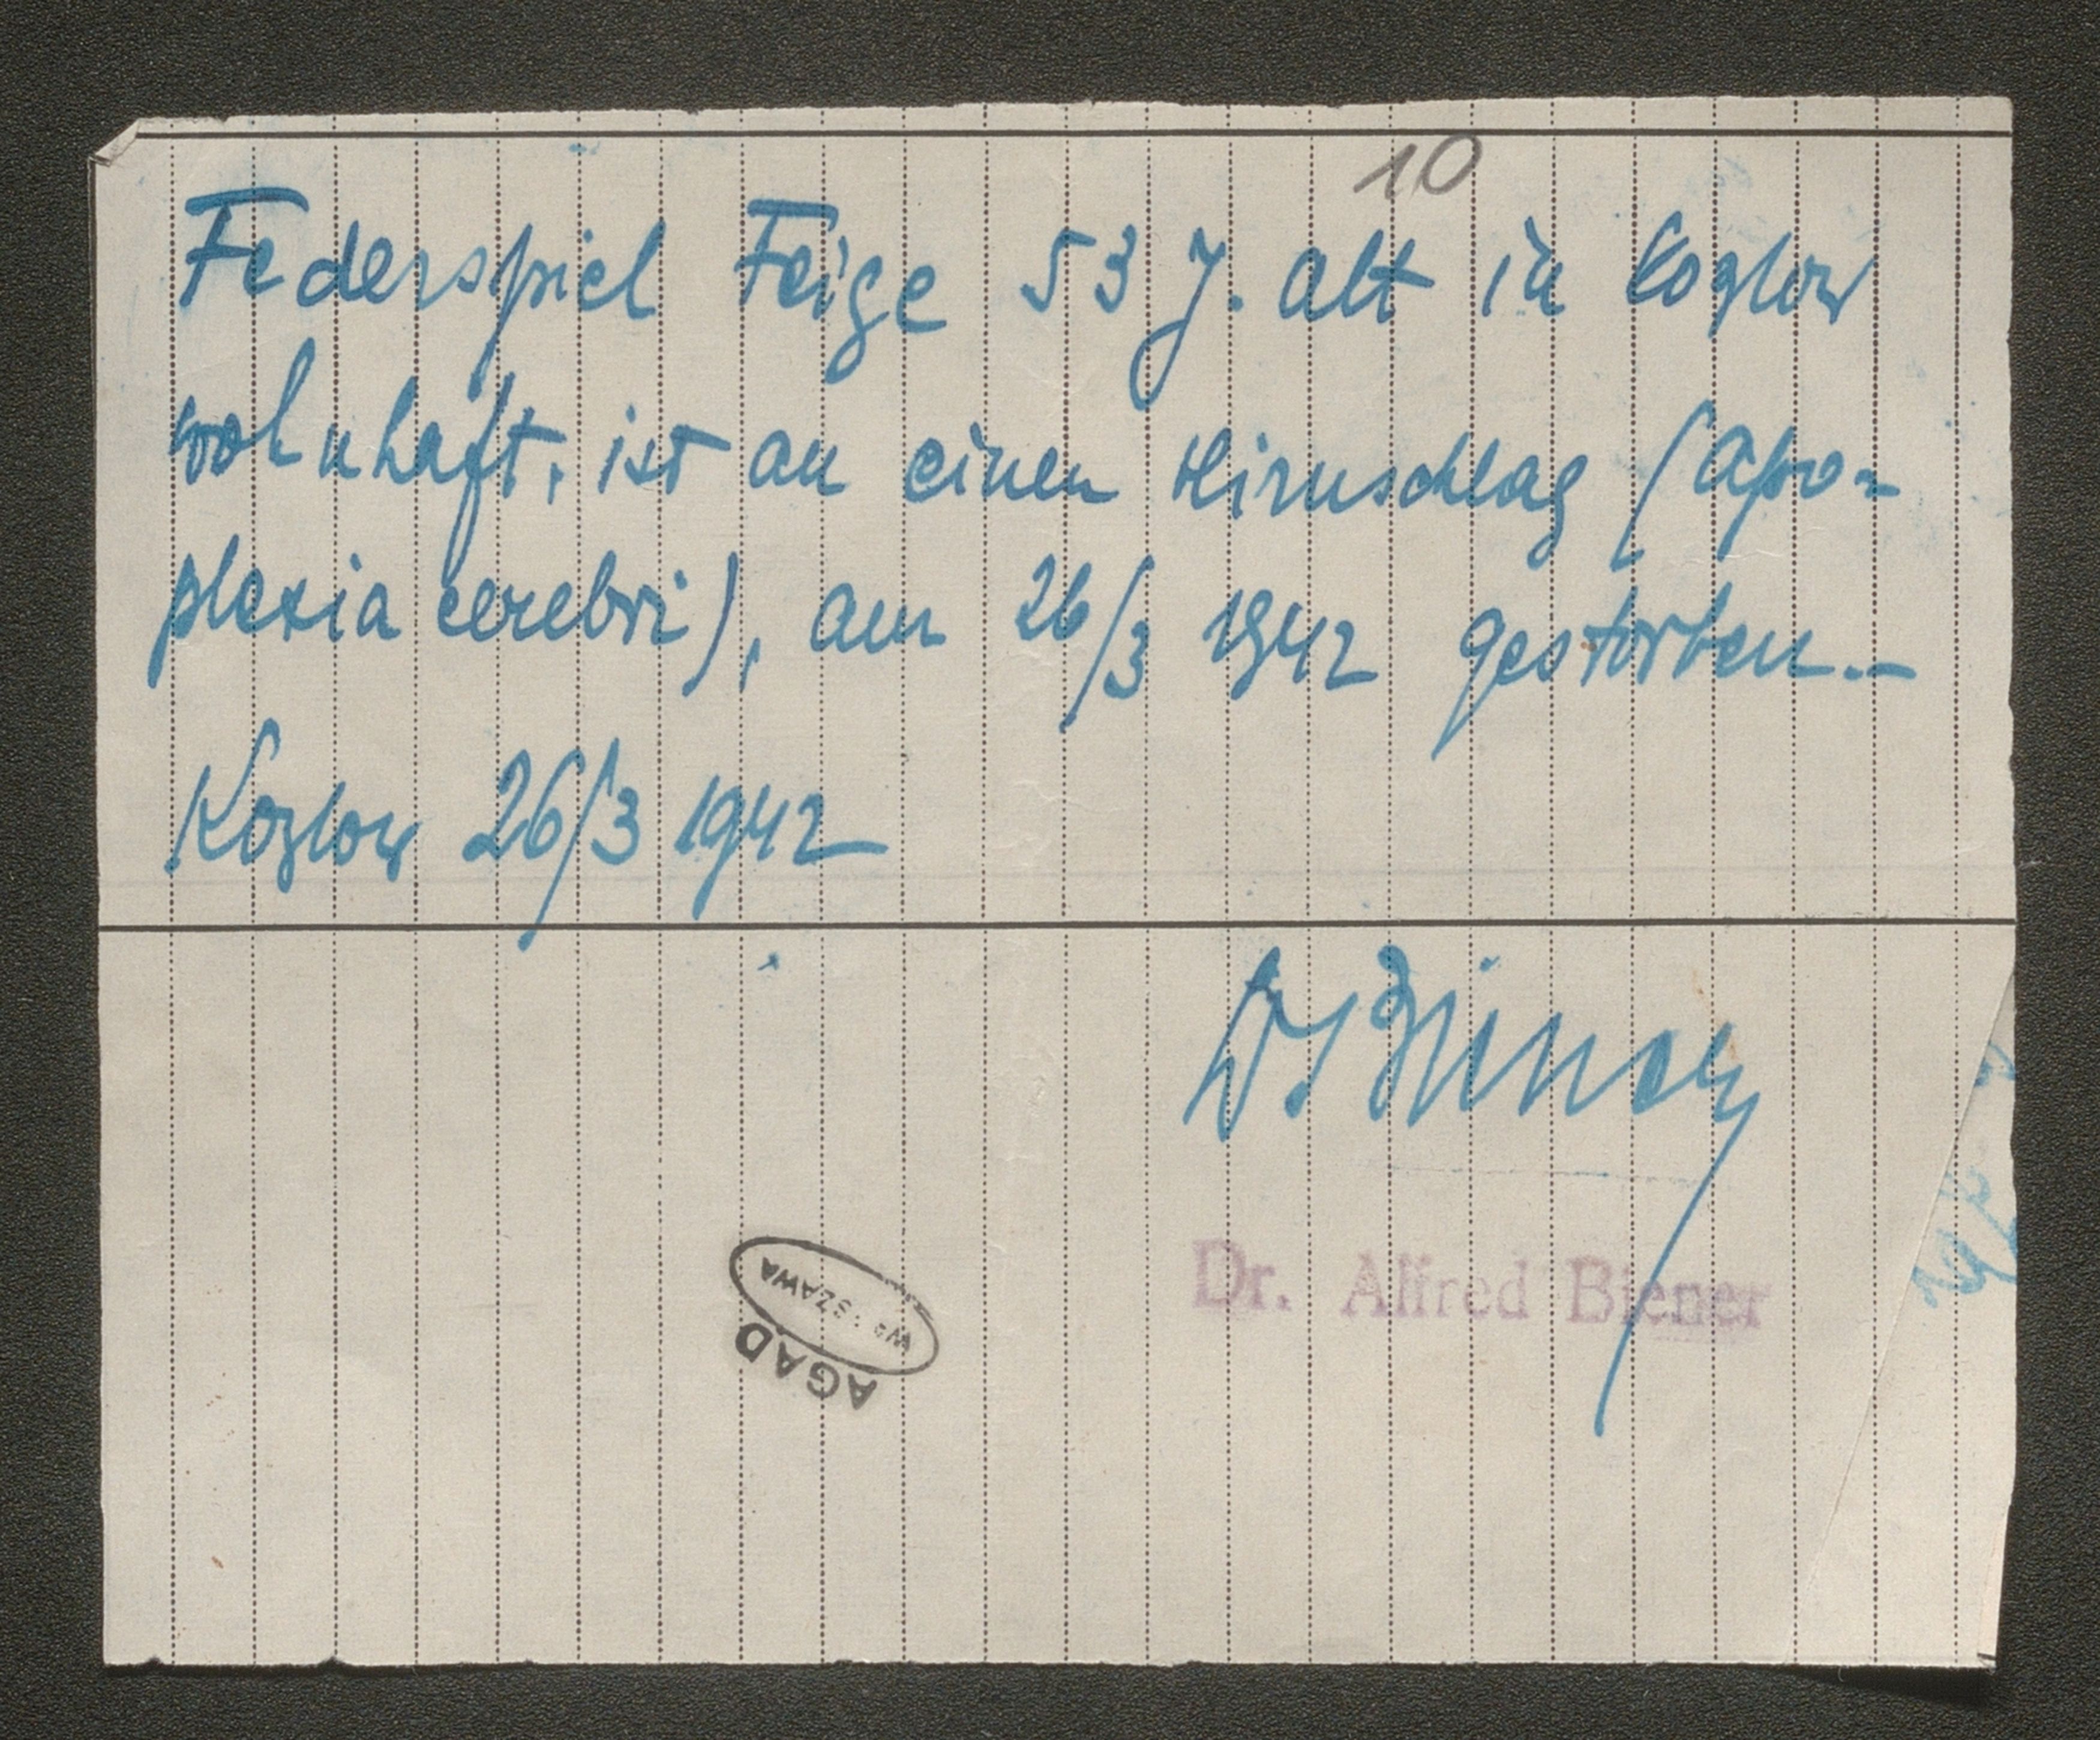 10
Federspiel Feige 53 J. alt in Kozlow
wohnhaft, ist an einen Hirnschlag (Apo-
plexia cerebri), am 26/3 1942 gestorben.-
Kozlow 26/3 1942
Dr Biener
Dr. Alfred Biener
AGAD
WARSZAWA